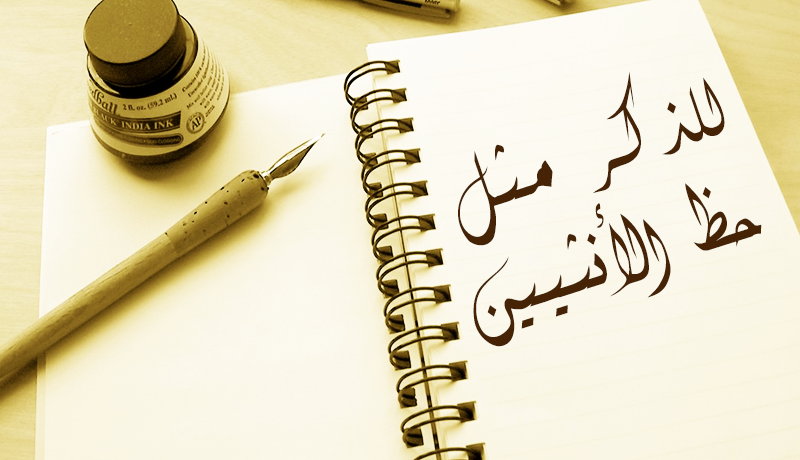 للذكر مثل
حظ الأنثيين
2 fl. oz. (59.2 mL)
INDIA INK
AP